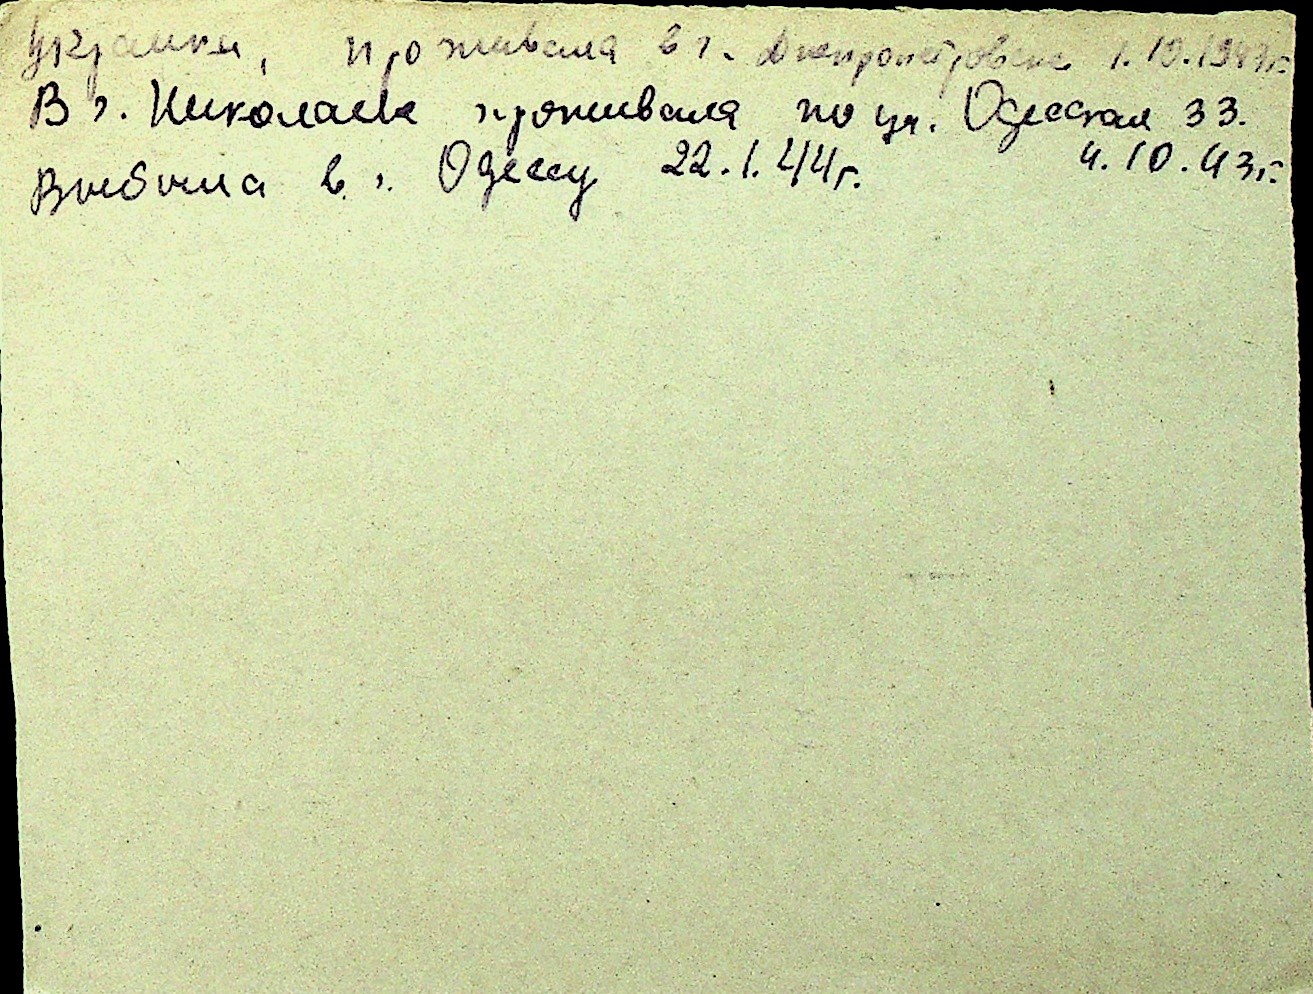 украинка, проживала в г. Днепропетровске 1.10.1943г.
В г. Николаеве проживала по ул. Одесская 33.
4.10.43г.
Выбыла в г. Одессу 22.1.44г.